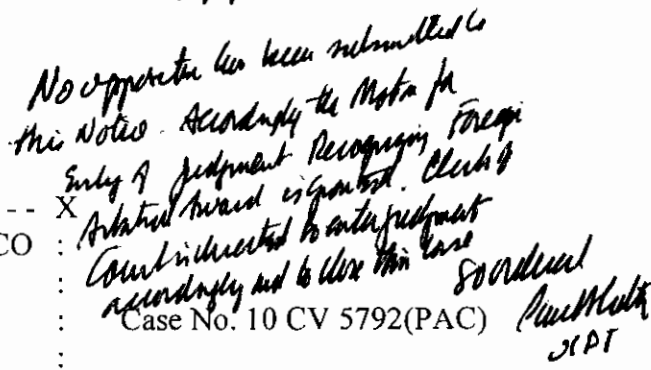 No opposition has been submitted to
this Notice. Accordingly the Motion for
Entry of Judgment Recognizing Foreign
Arbitral Award is granted. Clerk of
-- X
CO :
Court is directed to enter judgment
:
accordingly and to close this case
So ordered
: Case No. 10 CV 5792(PAC)
: